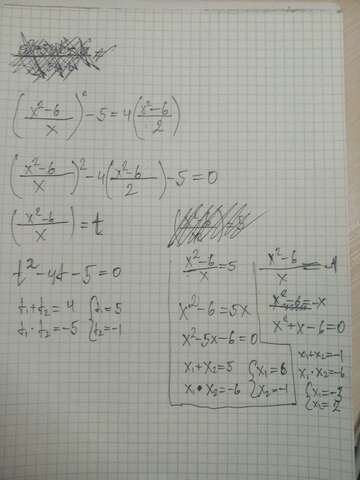 (x²-6/x)² - 5 = 4(x²-6/2)
(x²-6/x)² - 4(x²-6/2) - 5 = 0
(x²-6/x) = t
t² - 4t - 5 = 0
t₁+t₂ = 4 { t₁ = 5
t₁·t₂ = -5 { t₂ = -1
x²-6/x = 5
x²-6 = 5x
x²-5x-6=0
x₁+x₂=5 { x₁=6
x₁·x₂=-6 { x₂=-1
x²-6/x = -1
x²-6=-x
x²+x-6=0
x₁+x₂=-1
x₁·x₂=-6
{ x₁=-3
x₂=2